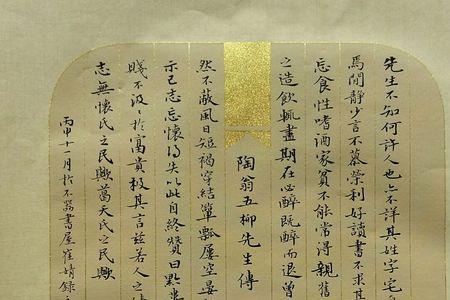 先生不知何許人也亦不詳其姓字宅
焉閒靜少言不慕榮利好讀書不求
忘食性嗜酒家貧不能常得親舊
之造飲輒盡期在必醉既醉而退曾
陶翁五柳先生傳
然不蔽風日短褐穿結簞瓢屢空晏
示己志忘懷得失以此自終贊曰黔
賤不汲於富貴極其言茲若人之
志無懷氏之民歟葛天氏之民歟
丙申十一月於不器書屋崔婧錄